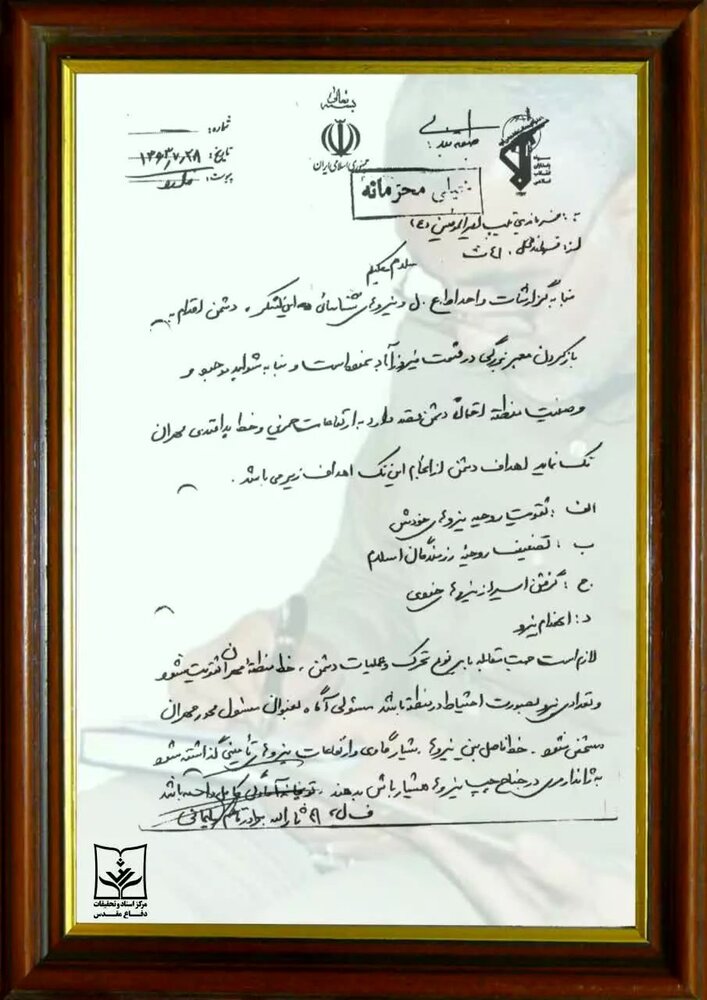 بسمه تعالی
جمهوری اسلامی ایران
سپاه پاسداران انقلاب اسلامی
شماره:
تاریخ: ۱۳۶۳/۷/۲۸
پیوست: ندارد
خیلی محرمانه
به: فرماندهی تیپ امیرالمؤمنین (ع)
از: فرماندهی ل ۴۱ ث
سلام علیکم
بنا به گزارشات واحد اطلاع ل و نیروهای شناسائی این لشکر، دشمن اقدام به
باز کردن معبر بزرگی در قسمت فیروزآباد نموده است و بنا به شواهد موجود و
وضعیت منطقه احتمالاً دشمن قصد دارد به ارتفاعات و خط پدافندی مهران
تک نماید اهداف دشمن از انجام این تک اهداف زیر می باشد.
الف: تقویت روحیه نیروهای خودش
ب: تضعیف روحیه رزمندگان اسلام
ج: گرفتن اسیر از نیروهای خودی
د: انهدام نیرو
لازم است جهت مقابله با هر نوع تحرک و عملیات دشمن، خط منطقه مهران تقویت شود
و تعدادی نیرو بصورت احتیاط در منطقه باشد مسئولی آگاه بعنوان مسئول محور مهران
مشخص شود. خط فاصل بین نیروها و ارتفاعات نیروهای تأمینی گذاشته شود
به ژاندارمری در جناح چپ نیروها هشیار باش بدهند. توپخانه آمادگی کامل داشته باشد
ف ل ۴۱ ثارالله برادر قاسم سلیمانی
مرکز اسناد و تحقیقات
دفاع مقدس